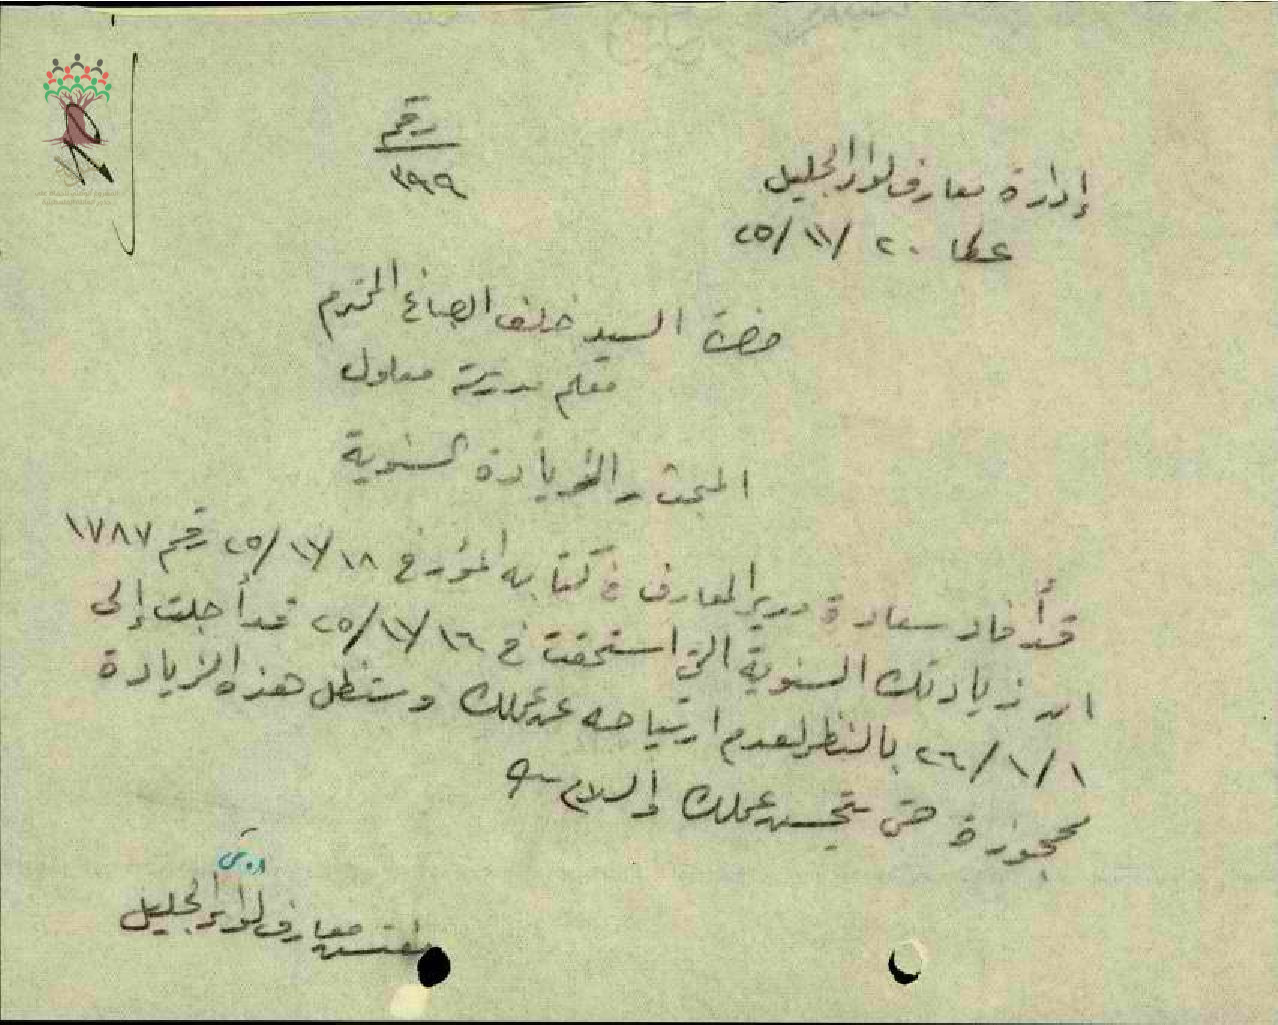 رقم
٣٩٩
إدارة معارف لواء الجليل
عكا ٢٠/١١/٢٥
حضرة السيد خلف الصائغ المحترم
معلم مدرسة معلول
المبحث - الزيادة السنوية
قد أفاد سعادة مدير المعارف في كتابه المؤرخ ١٨/١١/٢٥ رقم ١٧٨٧
ان زيادتك السنوية التي استحقت في ١٦/١١/٢٥ قد أجلت إلى
١/١/٢٦ بالنظر لعدم ارتياحه عن عملك وستظل هذه الزيادة
محجوزة حتى يتحسن عملك والسلام
مفتش معارف لواء الجليل